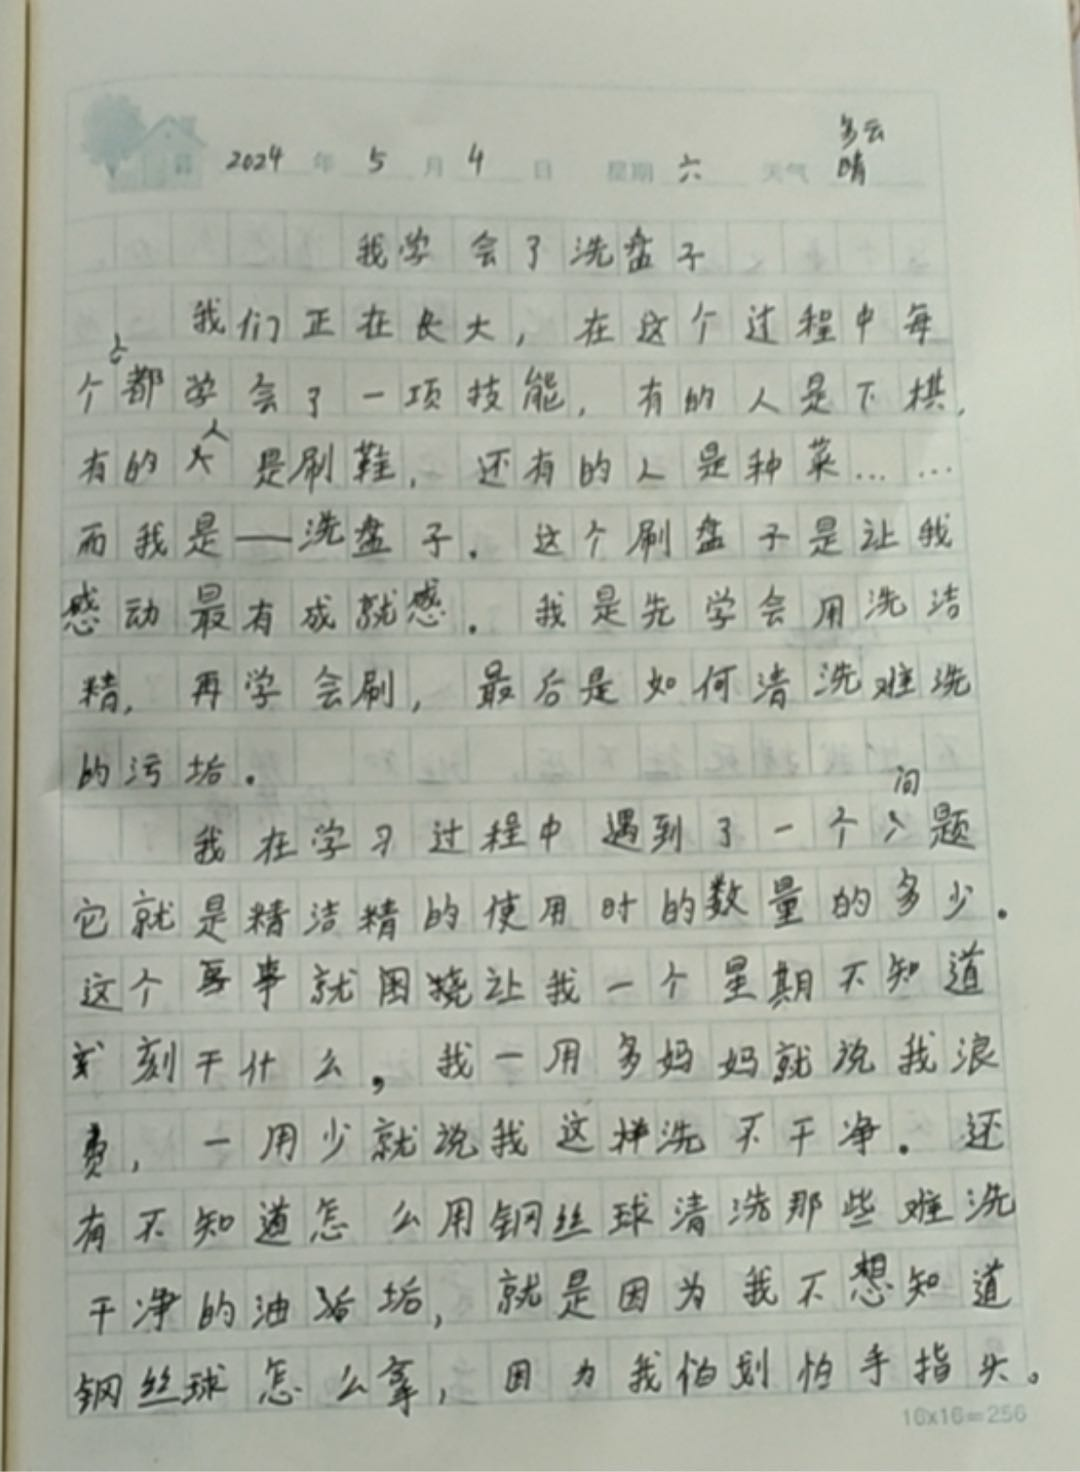 2024年5月4日 星期六 天气 多云 晴
我学会了洗盘子
我们正在长大，在这个过程中每
个都学会了一项技能，有的人是下棋，
有的人是刷鞋，还有的人是种菜……
而我是——洗盘子。这个刷盘子是让我
感动最有成就感。我是先学会用洗洁
精，再学会刷，最后是如何清洗难洗
的污垢。
我在学习过程中遇到了一个问题
它就是精洁精的使用时的数量的多少。
这个事就困挠让我一个星期不知道
刻干什么，我一用多妈妈就说我浪
费，一用少就说我这样洗不干净。还
有不知道怎么用钢丝球清洗那些难洗
干净的油垢，就是因为我不想知道
钢丝球怎么拿，因为我怕划怕手指头。
16x16=256